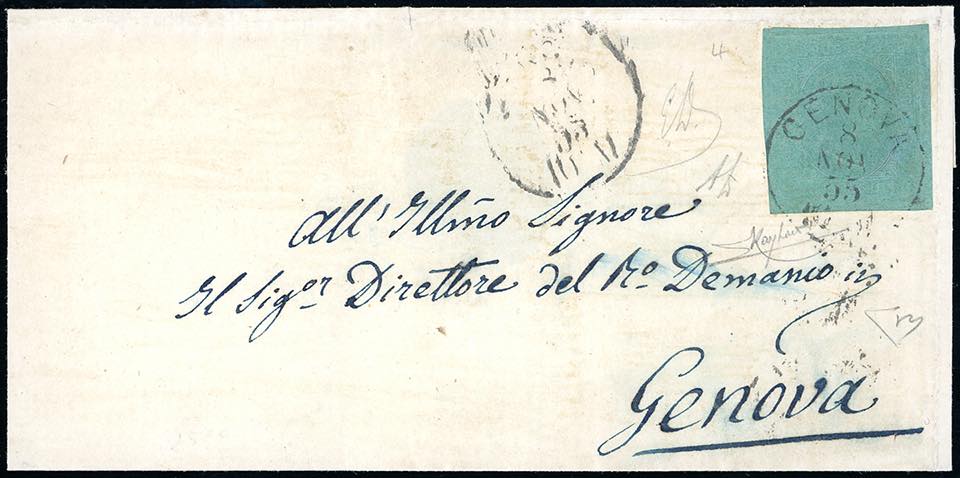 4
GENOVA
55
All' Illmo Signore
Il Sigor Direttore del Ro Demanio in
Genova